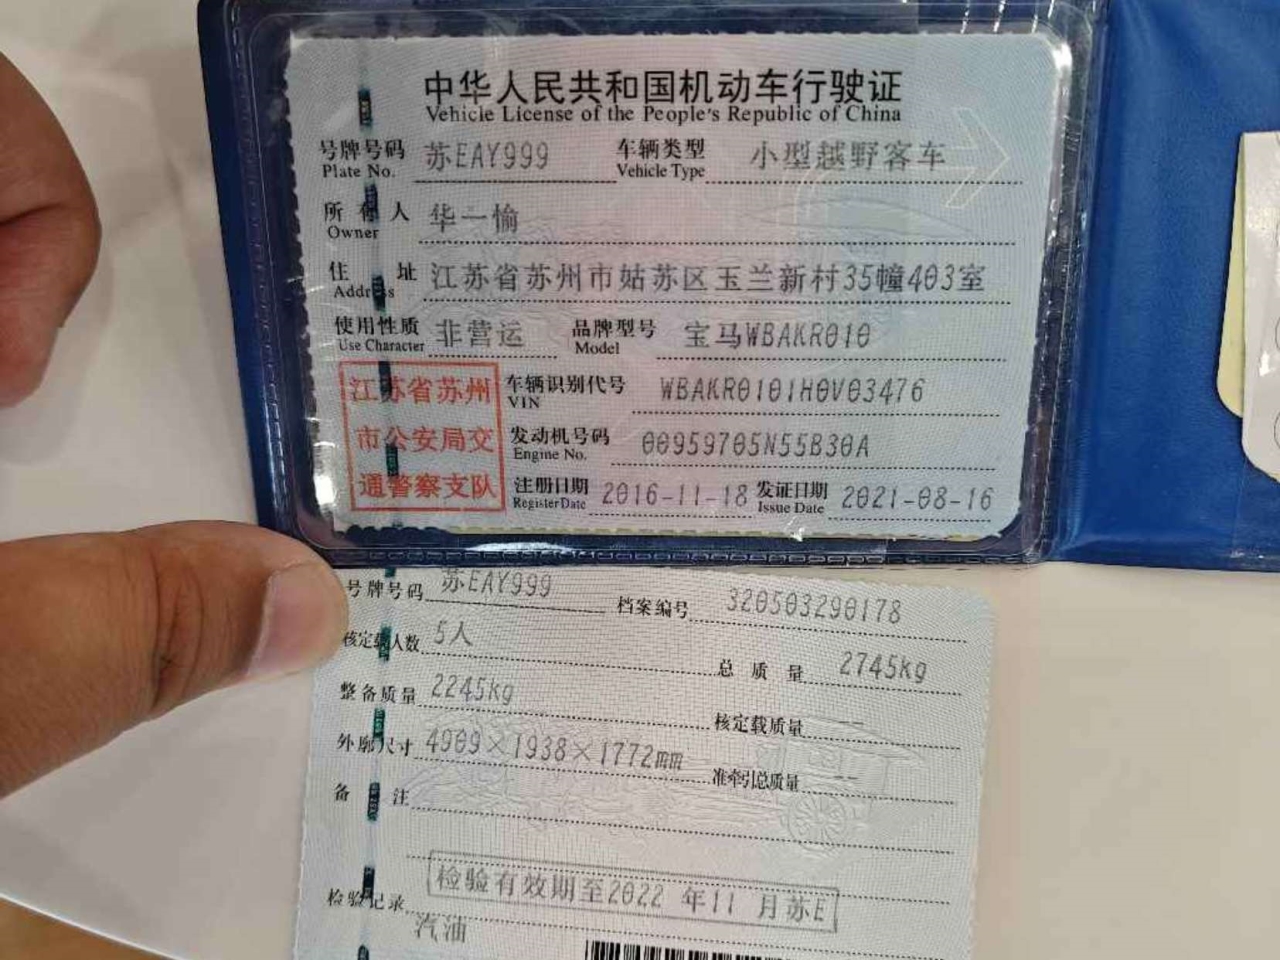 中华人民共和国机动车行驶证
Vehicle License of the People's Republic of China
号牌号码 苏EAY999 车辆类型 小型越野客车
Plate No. Vehicle Type
所有人 华一愉
Owner
住址 江苏省苏州市姑苏区玉兰新村35幢403室
Address
使用性质 非营运 品牌型号 宝马WBAKR010
Use Character Model
江苏省苏州
市公安局交
通警察支队
车辆识别代号 WBAKR0101H0V03476
VIN
发动机号码 00959705N55B30A
Engine No.
注册日期 2016-11-18 发证日期 2021-08-16
Register Date Issue Date
号牌号码 苏EAY999 档案编号 320503290178
核定载人数 5人 总质量 2745kg
整备质量 2245kg 核定载质量 --
外廓尺寸 4909×1938×1772mm 准牵引总质量 --
备注
检验记录 检验有效期至2022年11月苏E
汽油